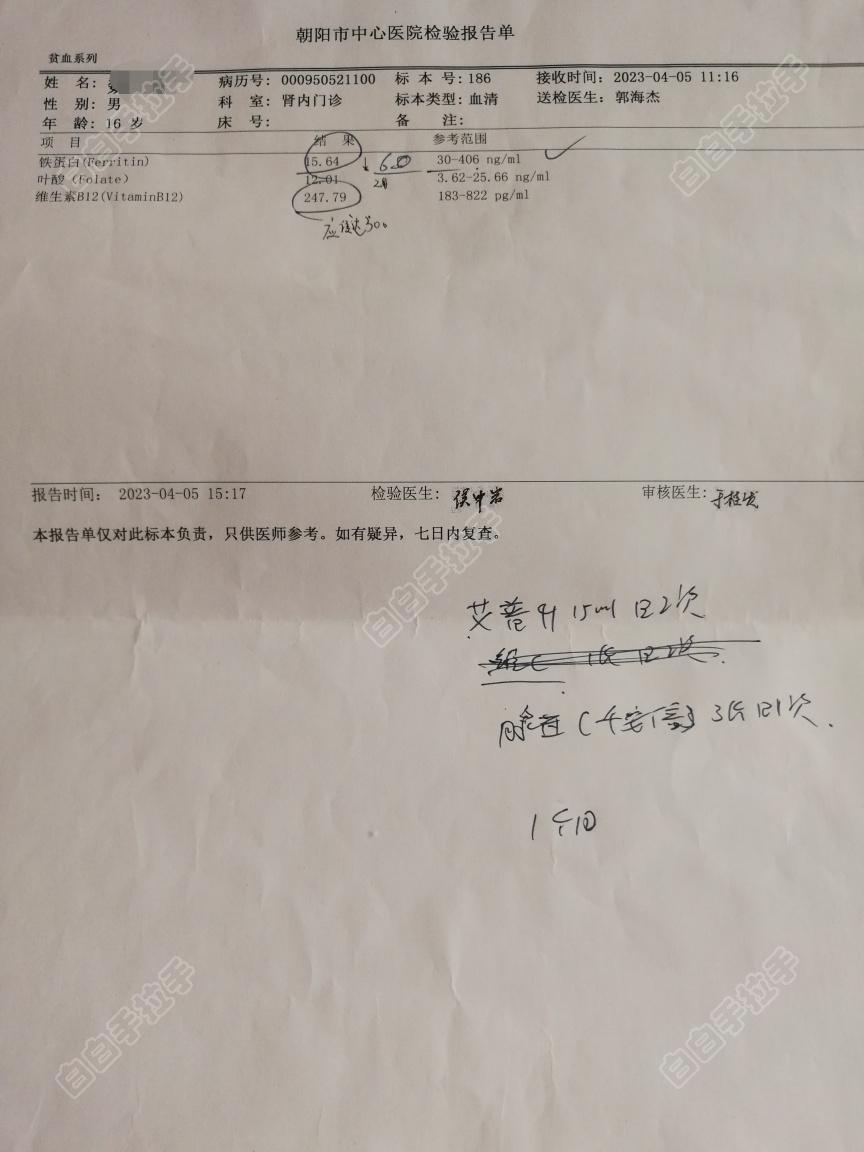 朝阳市中心医院检验报告单
贫血系列
姓 名: 病历号: 000950521100 标 本 号: 186 接收时间: 2023-04-05 11:16
性 别: 男 科 室: 肾内门诊 标本类型: 血清 送检医生: 郭海杰
年 龄: 16 岁 床 号: 备 注:
项 目 结 果 参考范围
铁蛋白(Ferritin) 15.64 ↓ 60 30-406 ng/ml
叶酸(Folate) 12.01 2月 3.62-25.66 ng/ml
维生素B12(VitaminB12) 247.79 183-822 pg/ml
应该达300
报告时间: 2023-04-05 15:17 检验医生: 审核医生:
本报告单仅对此标本负责，只供医师参考。如有疑异，七日内复查。
艾普 15ml 日2次
(千安倍) 3片 日1次.
白白手拉手
白白手拉手
白白手拉手
白白手拉手
白白手拉手